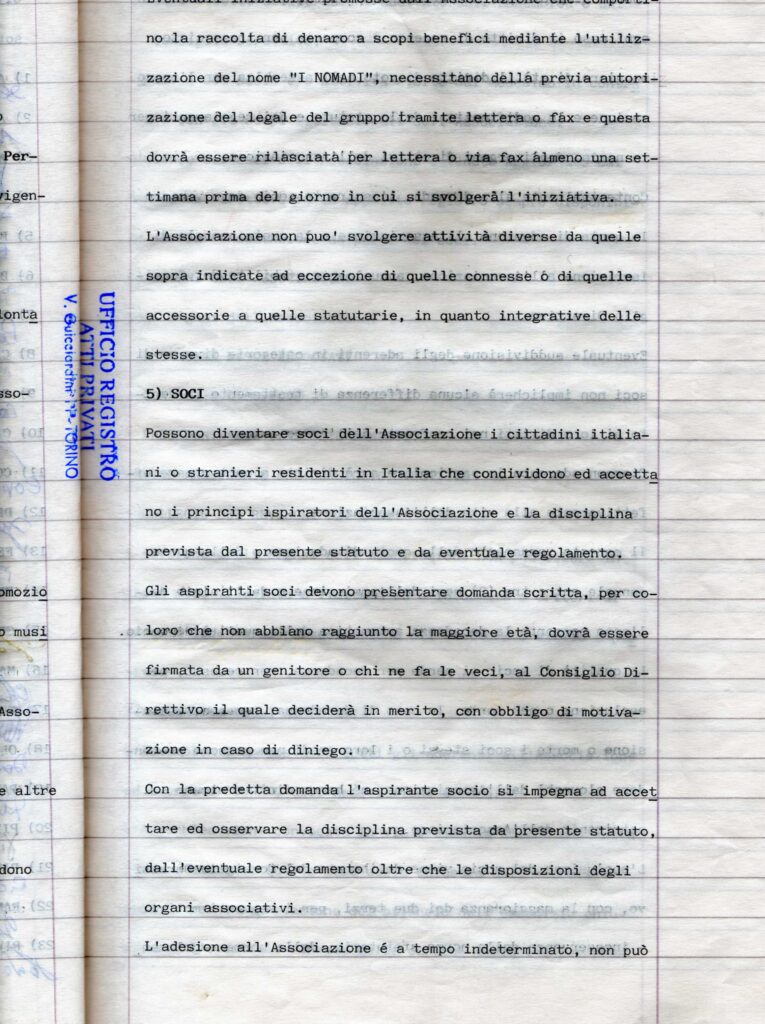 Eventuali iniziative promosse dall'Associazione che comporti-
no la raccolta di denaro a scopi benefici mediante l'utiliz-
zazione del nome "I NOMADI", necessitano della previa autori-
zazione del legale del gruppo tramite lettera o fax e questa
dovrà essere rilasciata per lettera o via fax almeno una set-
timana prima del giorno in cui si svolgerà l'iniziativa.
L'Associazione non puo' svolgere attività diverse da quelle
sopra indicate ad eccezione di quelle connesse o di quelle
accessorie a quelle statutarie, in quanto integrative delle
stesse.
5) SOCI
Possono diventare soci dell'Associazione i cittadini italia-
ni o stranieri residenti in Italia che condividono ed accetta
no i principi ispiratori dell'Associazione e la disciplina
prevista dal presente statuto e da eventuale regolamento.
Gli aspiranti soci devono presentare domanda scritta, per co-
loro che non abbiano raggiunto la maggiore età, dovrà essere
firmata da un genitore o chi ne fa le veci, al Consiglio Di-
rettivo il quale deciderà in merito, con obbligo di motiva-
zione in caso di diniego.
Con la predetta domanda l'aspirante socio si impegna ad accet
tare ed osservare la disciplina prevista da presente statuto,
dall'eventuale regolamento oltre che le disposizioni degli
organi associativi.
L'adesione all'Associazione é a tempo indeterminato, non può
Per-
vigen-
lonta
sso-
omozio
o musi
Asso-
e altre
dono
UFFICIO REGISTRO
ATTI PRIVATI
V. Guicciardini TORINO